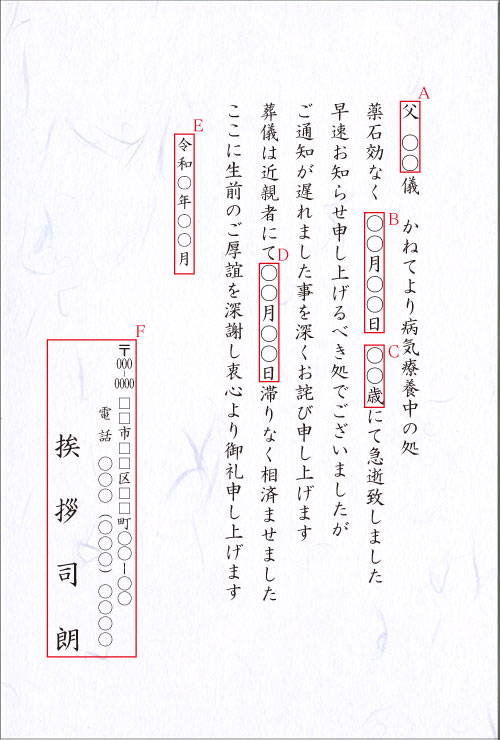 A
父 〇〇儀 かねてより病気療養中の処
B
C
薬石効なく 〇〇月〇〇日 〇〇歳にて急逝致しました
早速お知らせ申し上げるべき処でございましたが
ご通知が遅れました事を深くお詫び申し上げます
D
葬儀は近親者にて〇〇月〇〇日滞りなく相済ませました
ここに生前のご厚誼を深謝し衷心より御礼申し上げます
E
令和〇年〇〇月
F
〒000-0000 □□市□□区□□町〇〇ー〇〇
電話 〇〇〇(〇〇〇)〇〇〇〇
挨拶司朗